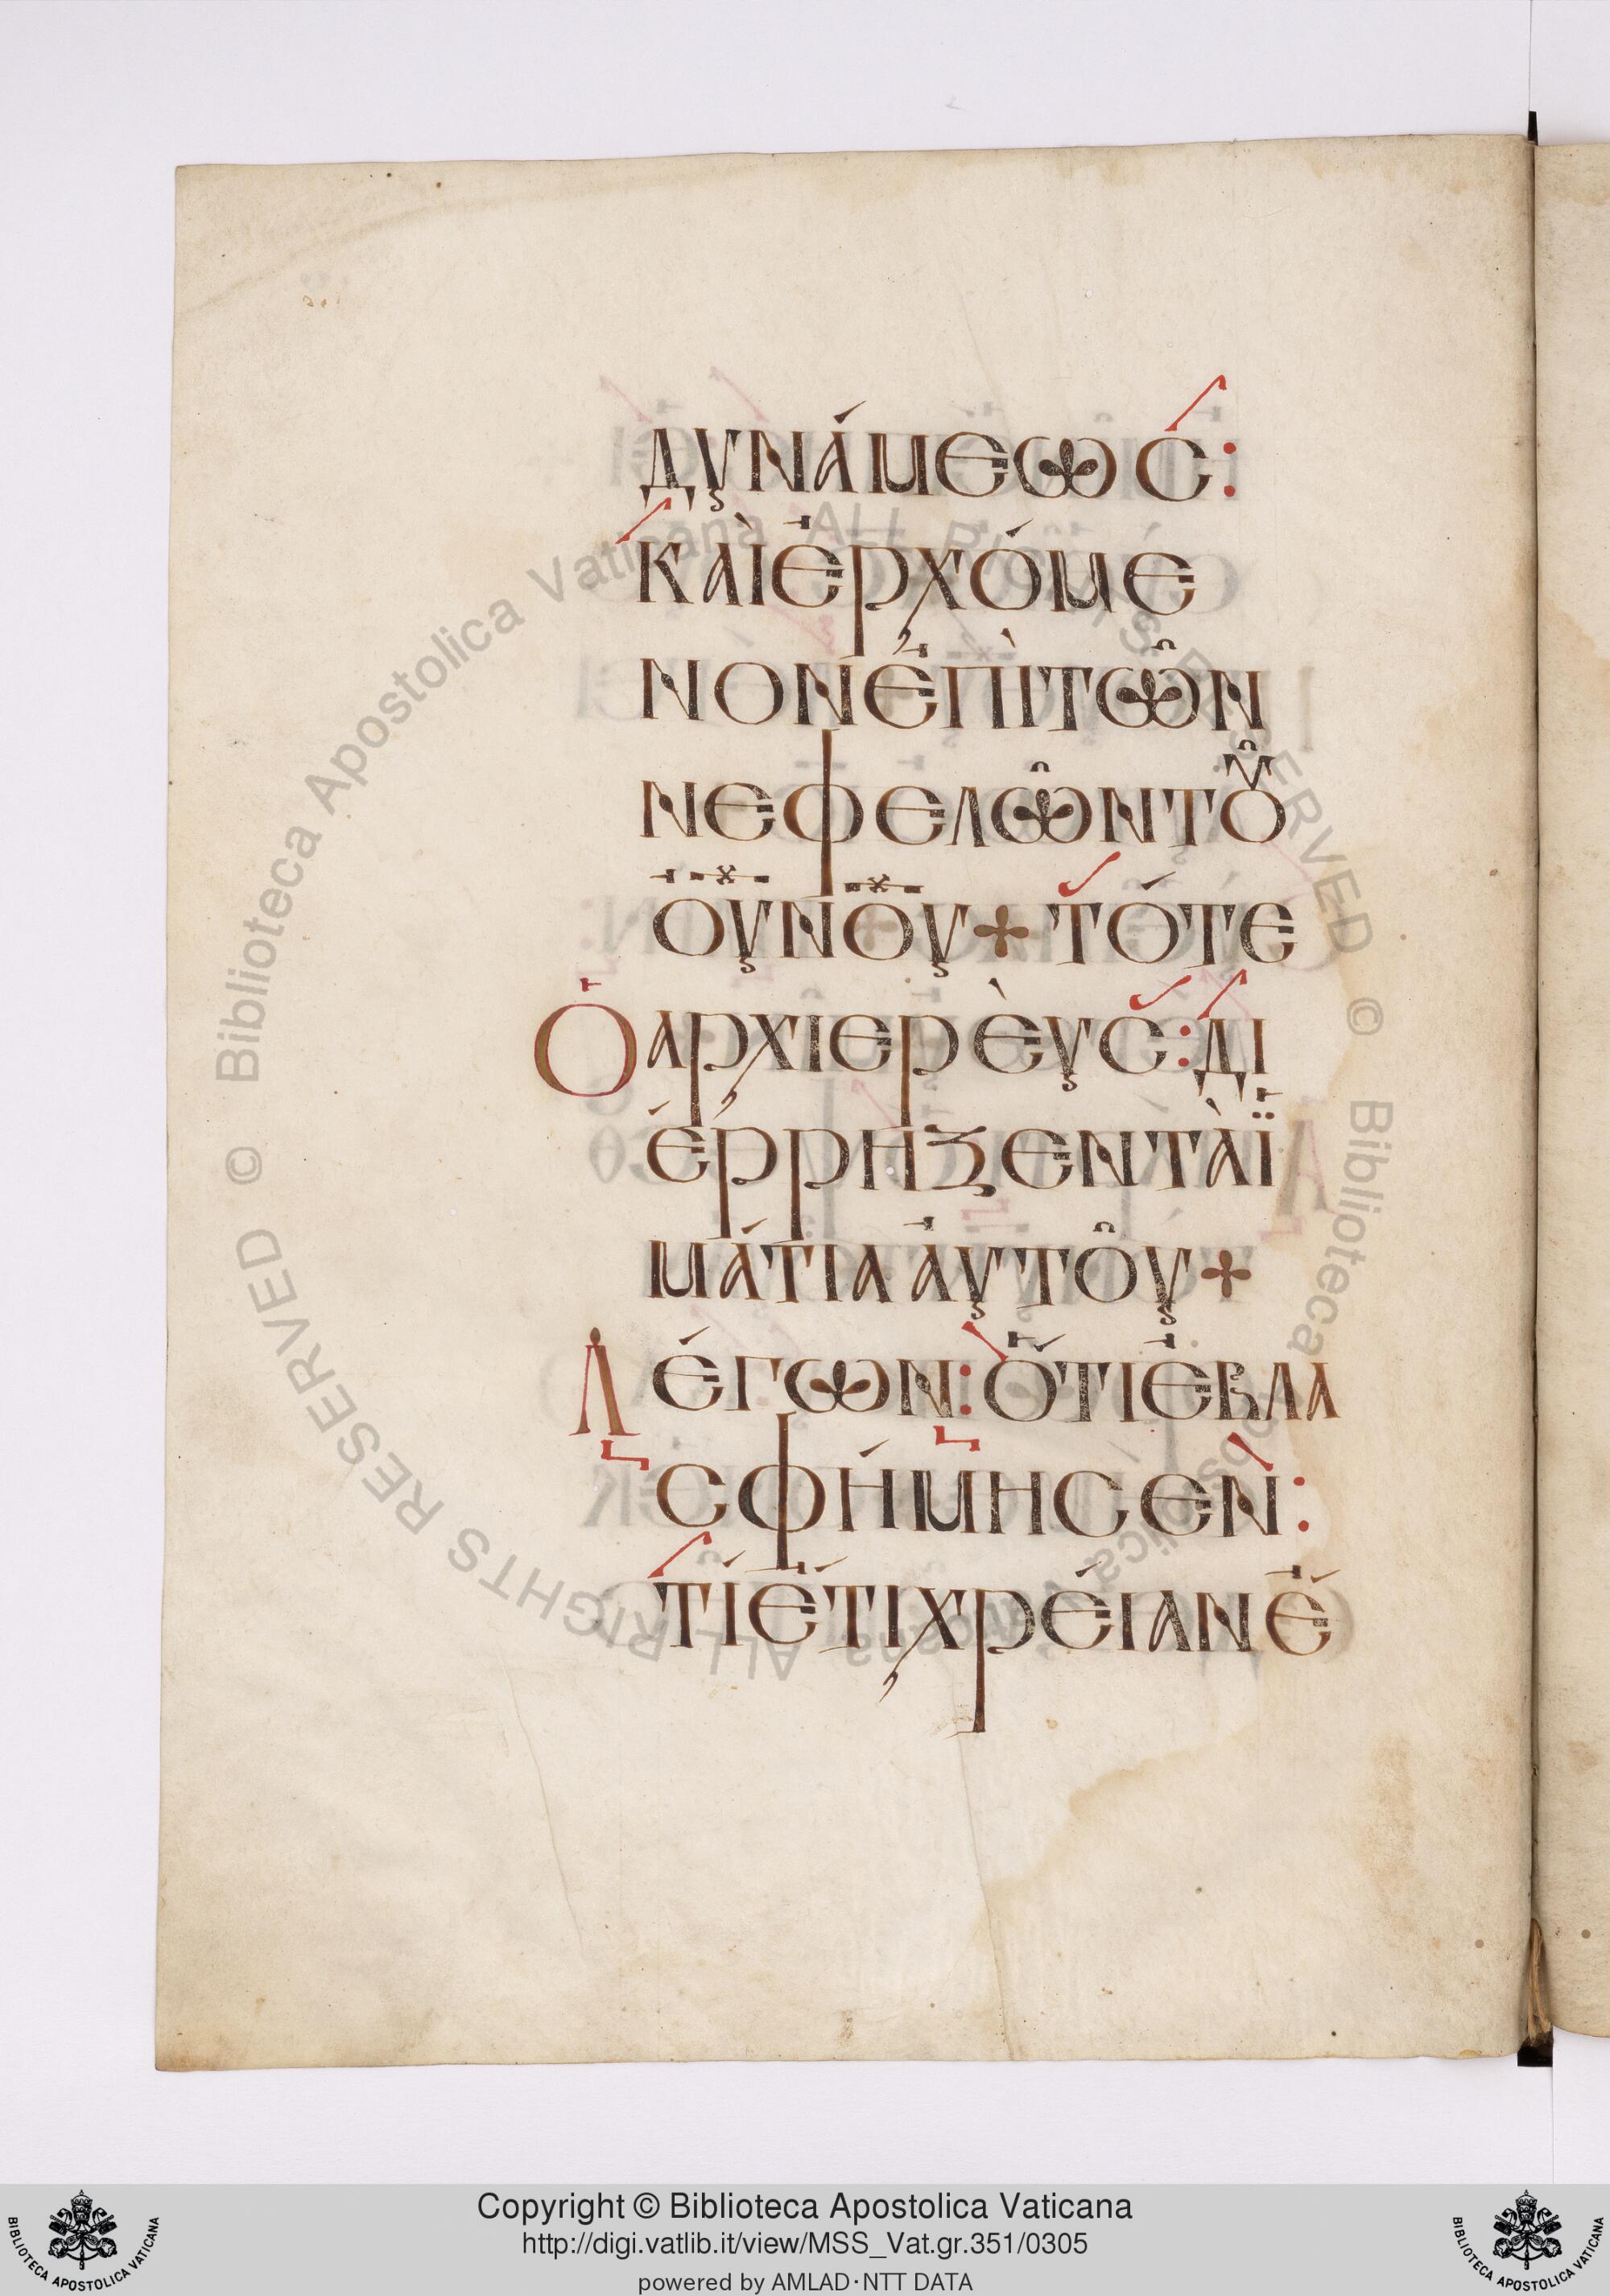 δυνάμεως:
καὶ ἐρχόμε
νον ἐπὶ τῶν
νεφελῶν τοῦ
ουνου + τότε
Ὁ αρχιερὲυς: δι
έρρηξεν τὰ ἱ
μάτια ἀυτοῦ +
Λέγων: ὅτι ἐβλα
σφήμησεν:
τί ἔτι χρέιαν ἔ
© Biblioteca Apostolica Vaticana ALL RIGHTS RESERVED © Biblioteca Apostolica Vaticana ALL RIGHTS RESERVED
BIBLIOTECA APOSTOLICA VATICANA
Copyright © Biblioteca Apostolica Vaticana
http://digi.vatlib.it/view/MSS_Vat.gr.351/0305
powered by AMLAD·NTT DATA
BIBLIOTECA APOSTOLICA VATICANA